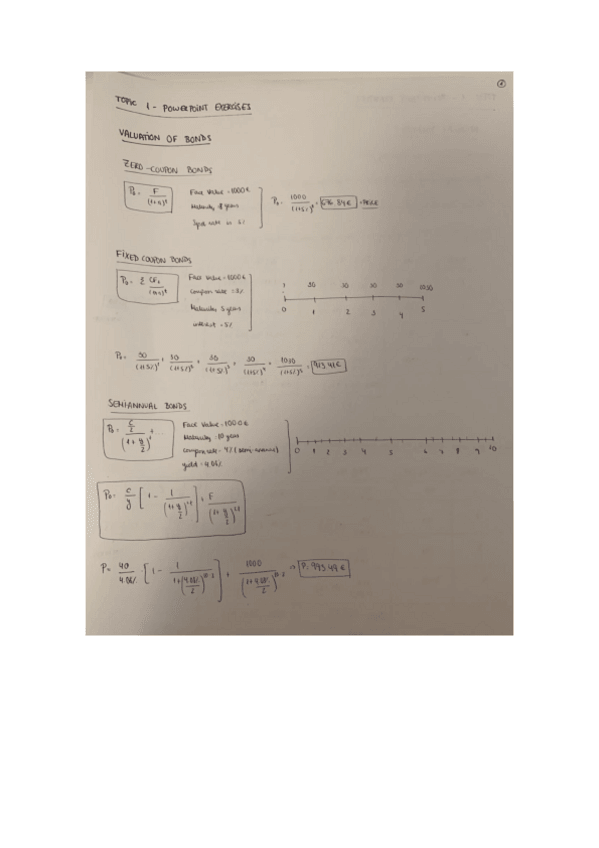 TOPIC 1 - POWERPOINT EXERCISES
VALUATION OF BONDS
ZERO-COUPON BONDS
P₀ = F / (1+r)ᵗ
Face Value = 1000 €
Maturity 8 years
Spot rate is 5%
P₀ = 1000 / (1+5%)⁸ = 676.84 € = PRICE
FIXED COUPON BONDS
P₀ = Σ CFₜ / (1+r)ᵗ
Face Value = 1000 €
coupon rate = 3%
Maturity 5 years
interest = 5%
30 30 30 30 1030
0 1 2 3 4 5
P₀ = 30 / (1+5%)¹ + 30 / (1+5%)² + 30 / (1+5%)³ + 30 / (1+5%)⁴ + 1030 / (1+5%)⁵ = 913.41 €
SEMIANNUAL BONDS
P₀ = C/2 / (1 + y/2)¹ + ...
Face Value = 1000 €
Maturity = 10 years
coupon rate = 4% (semi-annual)
yield = 4.08%
0 1 2 3 4 5 6 7 8 9 10
P₀ = C/y [1 - 1 / (1 + y/2)²ᵗ] + F / (1 + y/2)²ᵗ
P = 40 / 4.08% · [1 - 1 / 1 + (4.08% / 2)] + 1000 / (1 + 4.08% / 2) → P = 993.49 €